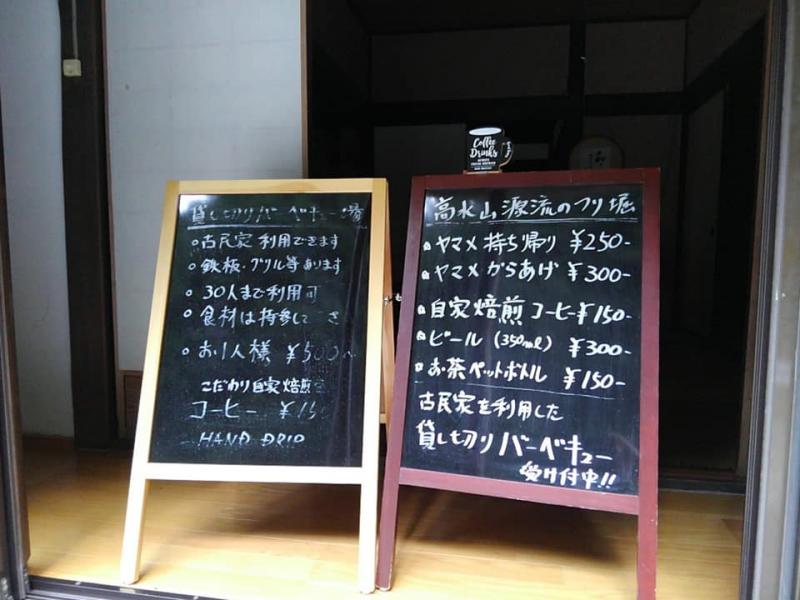 貸し切りバーベキュー場
○古民家利用できます
○鉄板・グリル等あります
○30人まで利用可
○食材は持参して
○お1人様 ¥500
こだわり自家焙煎
コーヒー ¥150
HAND DRIP
Coffee
Drinks
高水山源流のつり堀
ヤマメ持ち帰り ¥250-
ヤマメからあげ ¥300-
自家焙煎コーヒー¥150-
ビール (350ml) ¥300-
お茶ペットボトル ¥150-
古民家を利用した
貸し切りバーベキュー
受け付中!!